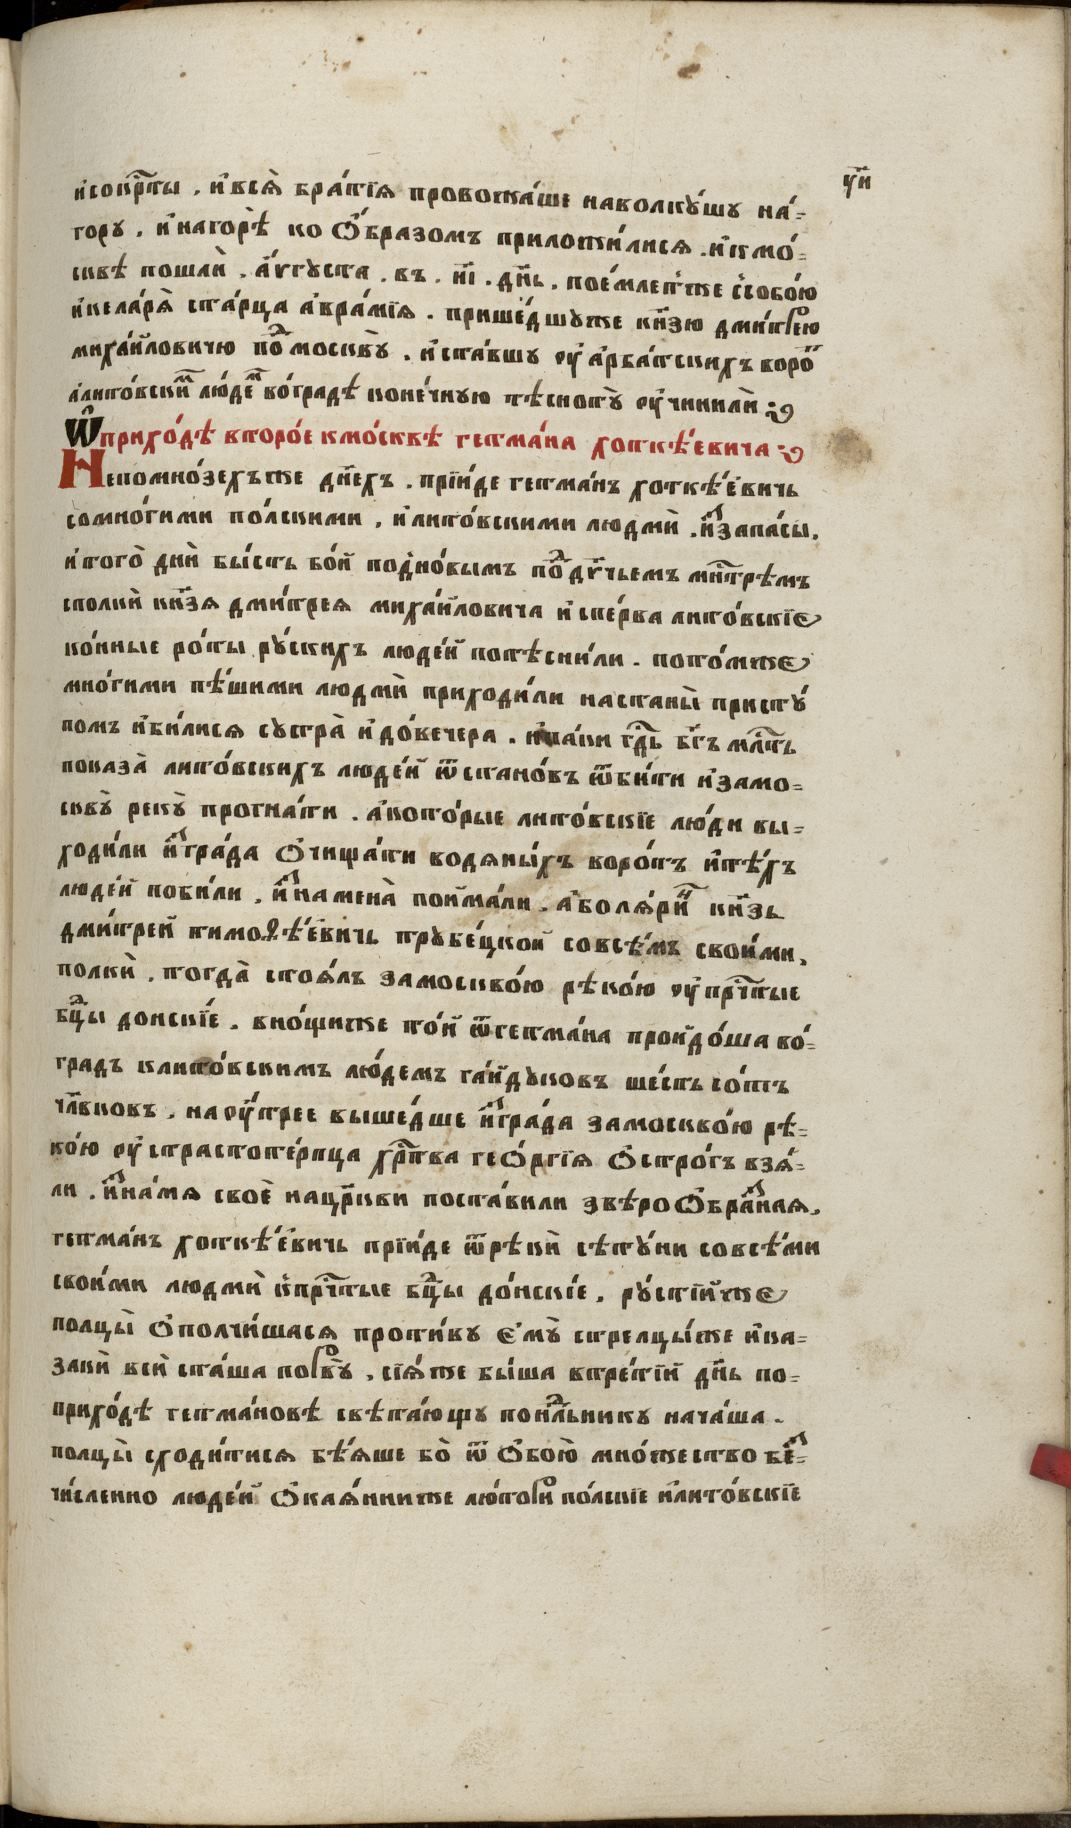 ѱ҃и
и҆сокр҇ты . и҆всѧ̀ бра́тїѧ провожа́ше наволку́шу на́-
гору . и҆нагорѣ̀ ко Ѻ҆́бразомъ приложи́лисѧ . и҆кмо-
сквѣ̀ пошлѝ . а҆́ѵгуста . въ . и҃і . д҃нь . пое́млетже ссобо́ю
и҆келарѧ̀ ста́рца а҆вра́мїѧ . прише́дшуже кн҃зю дми́трею
миха́йловичю поⷣ москву̀ . и҆ста́вшу ѹ҆ а҆рба́тскихъ вороⷮ
а҆лито́вскиⷨ лю́деⷨ во́градѣ коне́чную тѣсноту̀ ѹ҆чинилѝ
Ѡ҆ прихо́дѣ второ́е кмо́сквѣ гетма́на хоткѣ́евича
Непомно́зехъже дн҃ехъ . прїи́де гетма́нъ хоткѣ́евичь
сомно́гими по́лскими . и҆лито́вскими людмѝ . и҆ зⷥапа́сы .
и҆того̀ днѝ бы́сть бо́й подно́вымъ поⷣ дв҃чьемъ мн҇тремъ
сполкѝ кн҃зѧ дми́треѧ миха́йловича и҆спе́рва лито́вскїе
ко́нные ро́ты ру́скихъ люде́й потѣсни́ли . пото́мже
мно́гими пѣ́шими людмѝ приходи́ли настаны̀ присту́
помъ и҆би́лисѧ сутра̀ и҆до́вечера . и҆па́ки гд҇ь бг҃ъ мл҇ть
показа̀ лито́вскихъ люде́й ѿстано́въ ѿби́ти и҆замо-
скву̀ реку̀ прогна́ти . а҆кото́рые лито́вскїе лю́ди вы-
ходи́ли иⷥгра́да Ѻ҆чища́ти водѧны́хъ воро́тъ и҆тѣ́хъ
люде́й поби́ли . иⷥнамена̀ пойма́ли . а҆болѧ́риⷩ кн҃зь
дми́трей тимоѳѣ́евичь трубе́цкой совсѣ́мъ свои́ми .
полкѝ . тогда̀ стоѧ́лъ замоскво́ю рѣко́ю ѹ҆пр҇чтые
бцⷣы донскі́е . вно́щиже то́й ѿгетма́на пройдо́ша во́-
градъ клито́вскимъ лю́демъ га́йдуковъ ше́сть со́тъ
чл҃вковъ . наѹ҆́трее выше́дше иⷥгра́да замоскво́ю рѣ-
ко́ю ѹ҆ страстоте́рпца хр҇това геѺ҆́ргїѧ Ѻ҆стро́гъ взѧ́-
ли . иⷥна́мѧ своѐ нацр҃кви поста́вили звѣроѺ҆браⷥ́наѧ .
гетма́нъ хоткѣ́евичь прїи́де ѿрѣкѝ сѣту́ни совсѣ́ми
свои́ми людмѝ кпр҇чтые бцⷣы до́нскїе . ру́стїйже
полцы̀ Ѻ҆полчи́шасѧ проти́ву е҆му̀ стрелцы́же и҆ка-
закѝ всѝ ста́ша порву̀ . сїѧ́же бы́ша втре́тїй д҃нь по-
прихо́дѣ гетма́новѣ свѣта́ющу понⷣлнику нача́ша .
полцы̀ сходи́тисѧ бѣ́ѧше бо̀ ѿ Ѻ҆бою̀ мно́жество беⷥ-
чи́сленно люде́й Ѻ҆каѧ́ннииже лю́тори по́лскїе и҆лито́вскїе